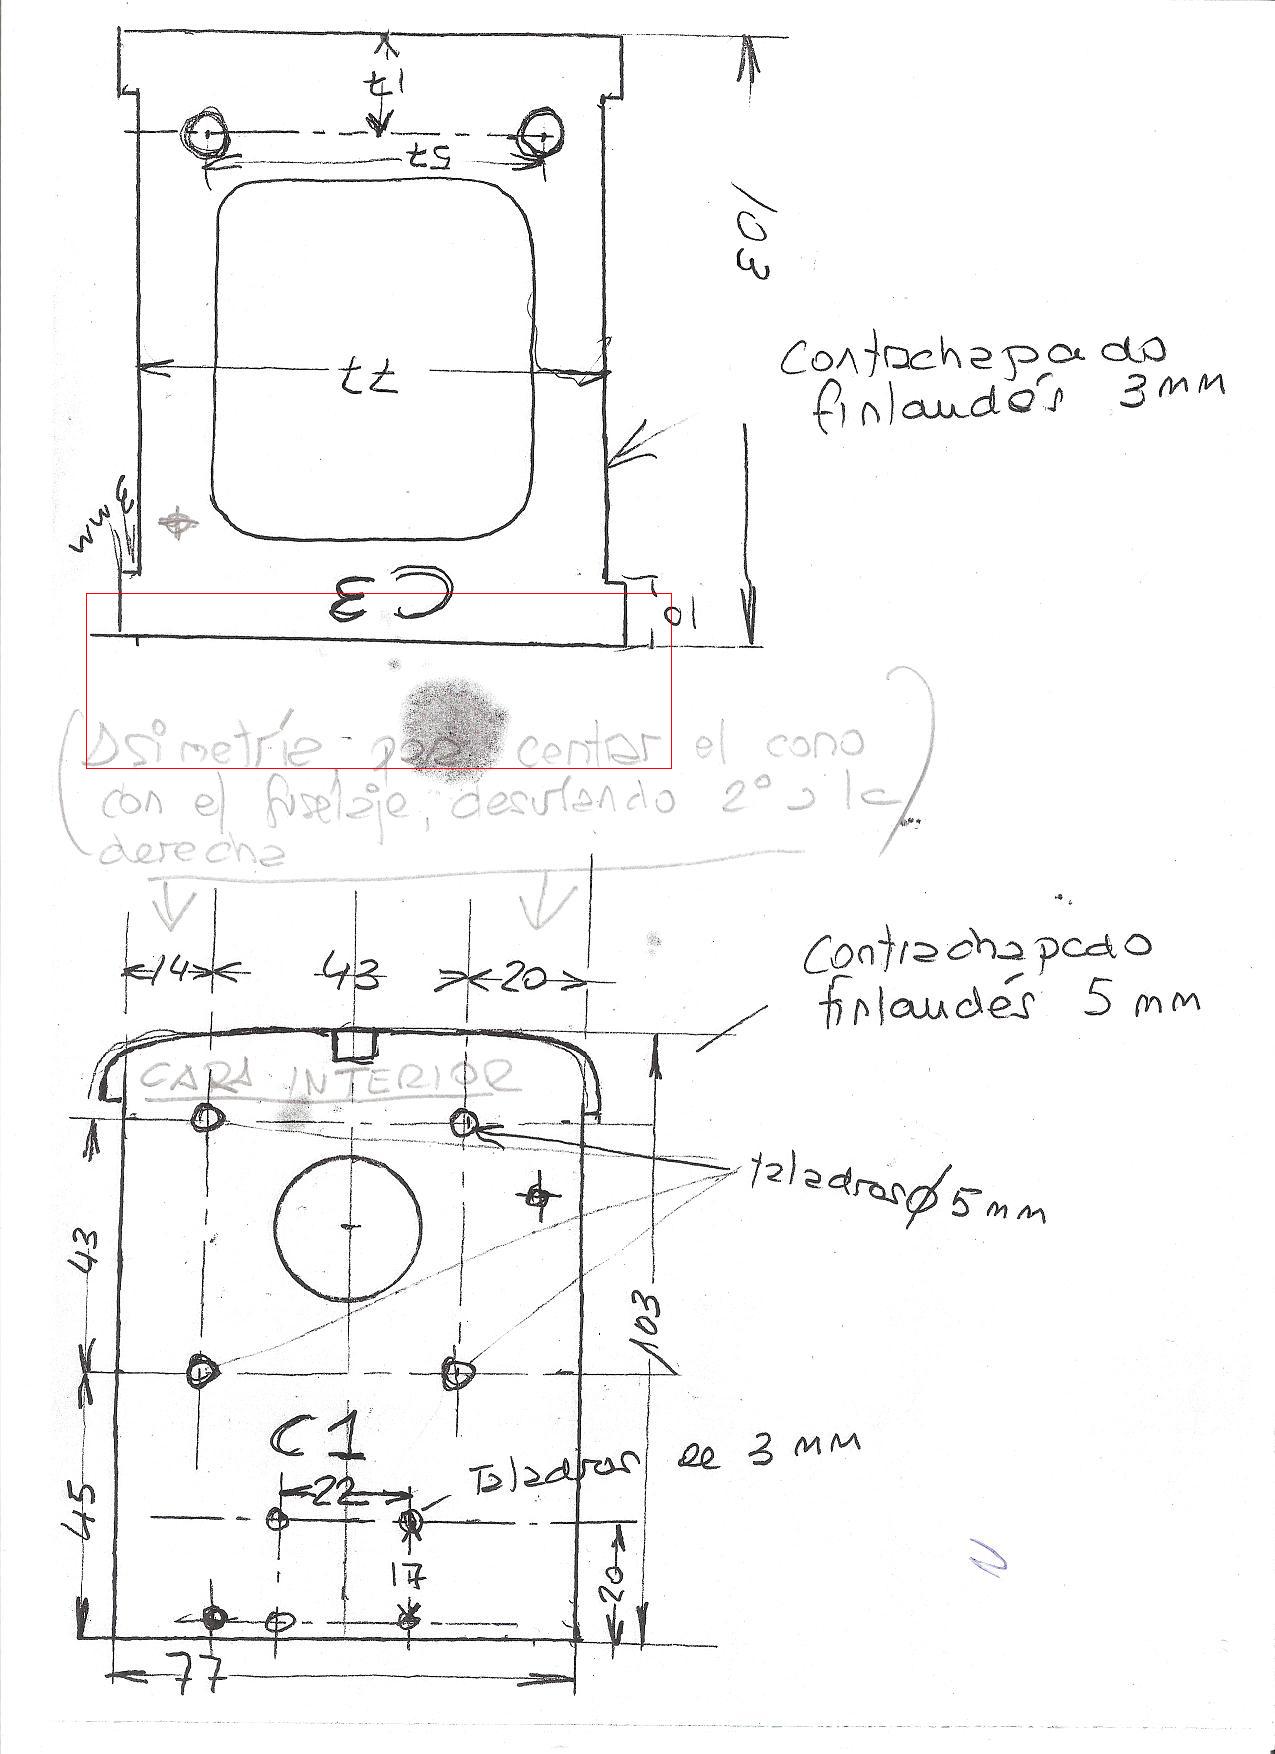 17
57
103
77
Contrachapado
finlandés 3 mm
3 mm
C3
10
(Asimetría para centrar el cono
con el fuselaje, desviando 2° a la
derecha)
14 43 20
Contrachapado
finlandés 5 mm
CARA INTERIOR
taladros Ø 5 mm
43
103
C1
Taladros de 3 mm
22
45
17
20
77